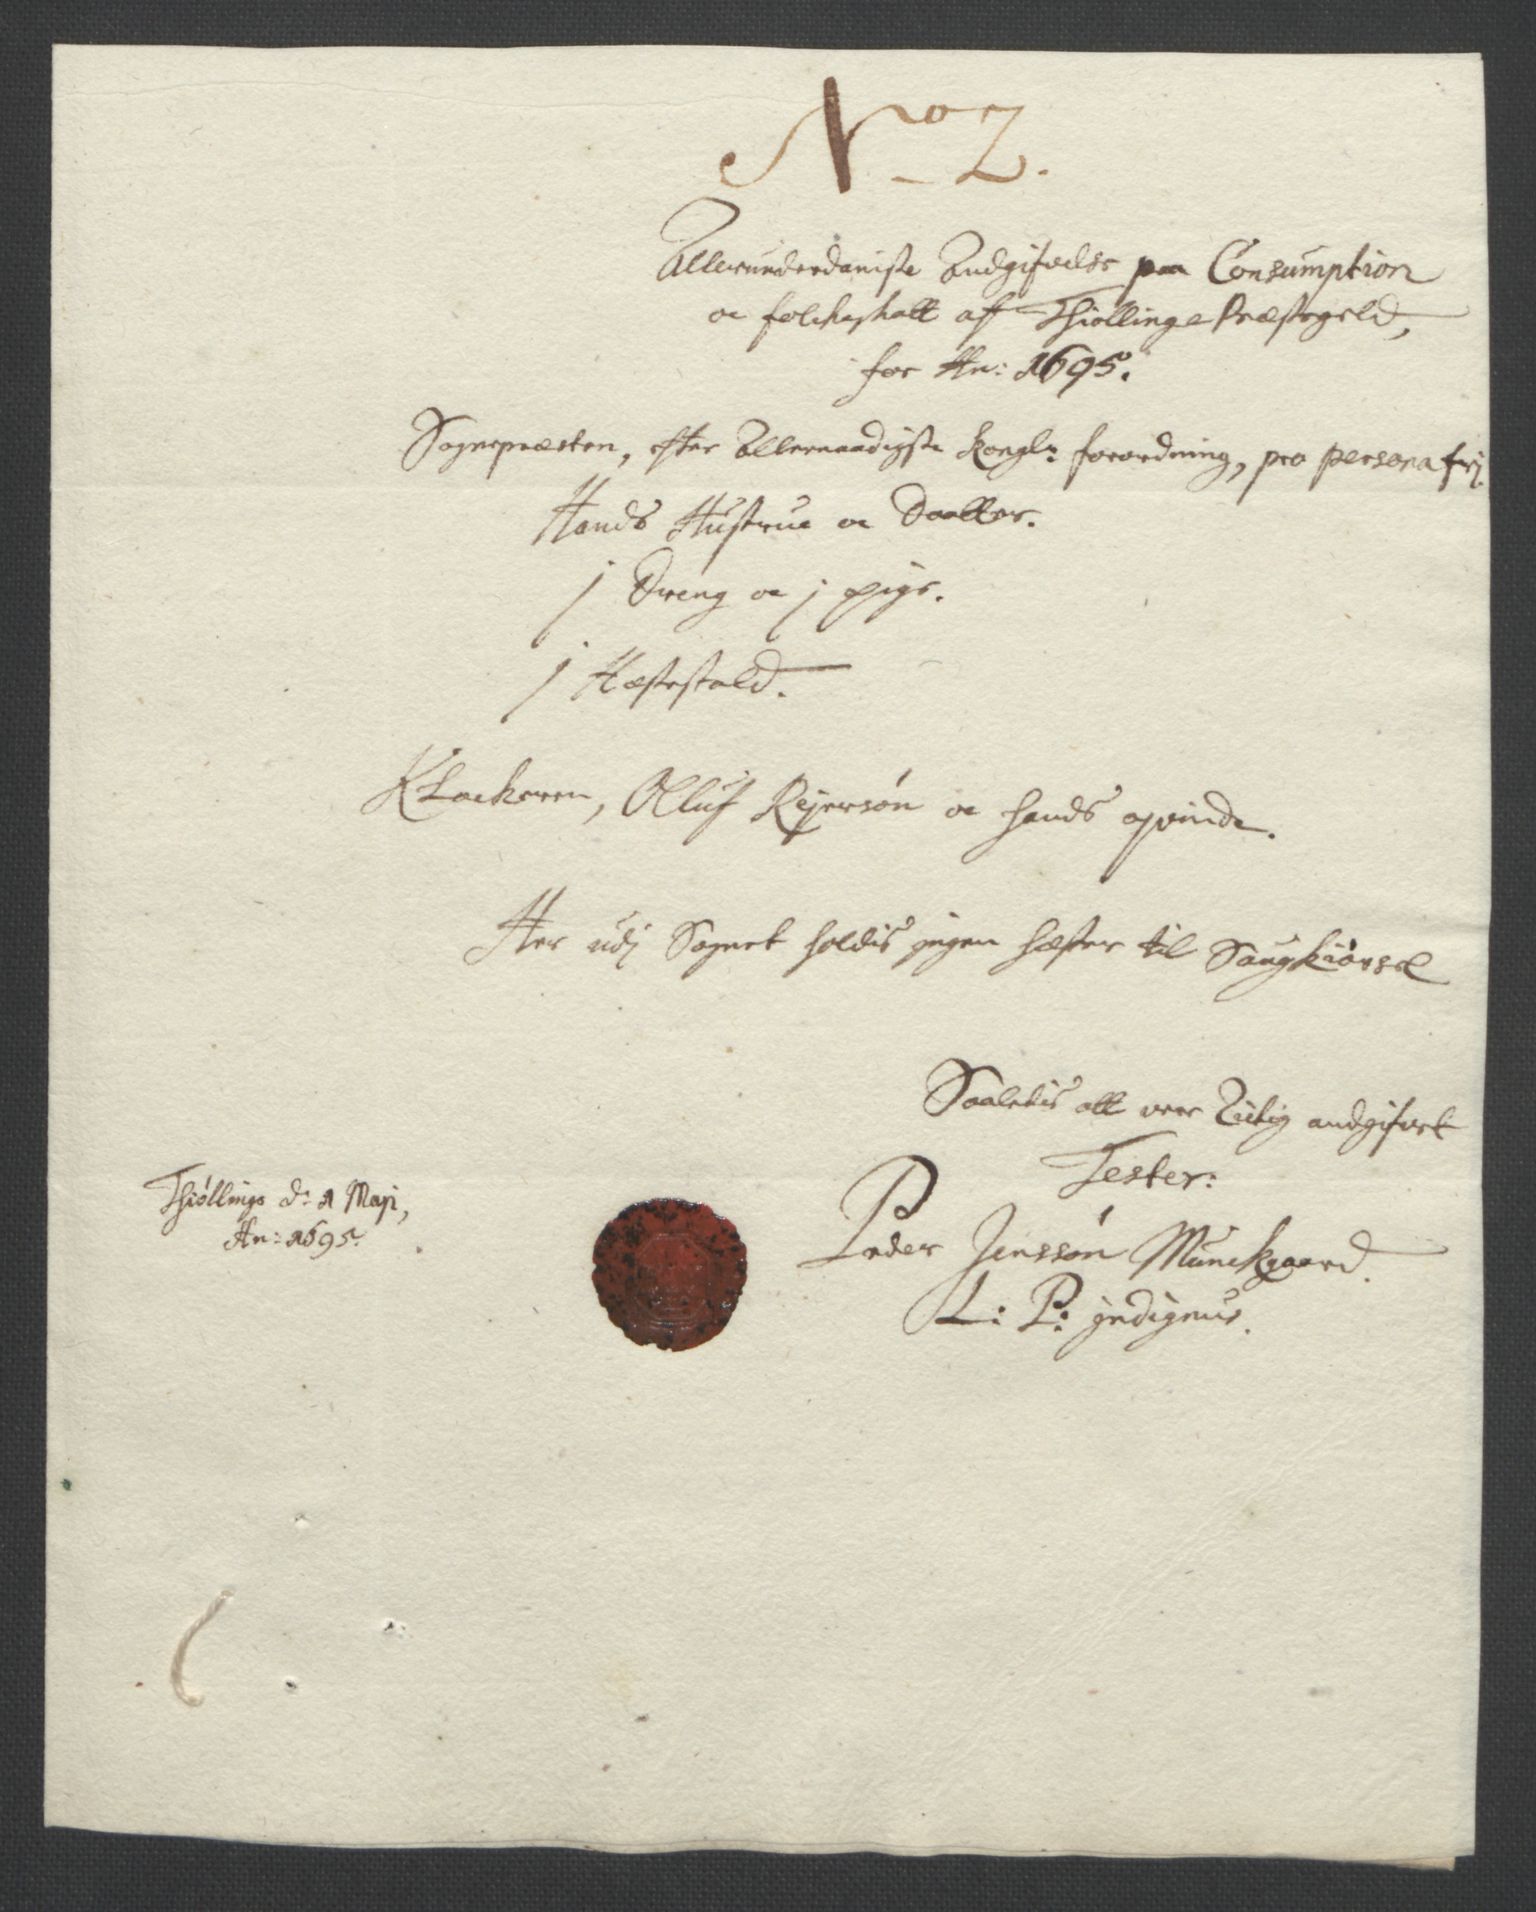 No 2.
Allerunderdaniste Andgifvelse paa Consumption
oc folcheskatt aff Thiøllinge Præstegeld,
for An: 1695.
Sognepræsten, efter Allernaadigste Kongl: forordning, pro persona frj.
Hands Hustrue oc Daatter.
j Dreng oc j pige.
j Hæstestald.
Klockeren, Olluf Rejersøn oc hands qvinde.
Her udj Sognet holdis jngen hæster til Saugkiørsel
Saaledis att vere Rictig andgifvet
Tester:
Peder Jenssøn Munckgaard.
L: P: jndignus.
Thiøllinge d: 1 Maji,
An: 1695.